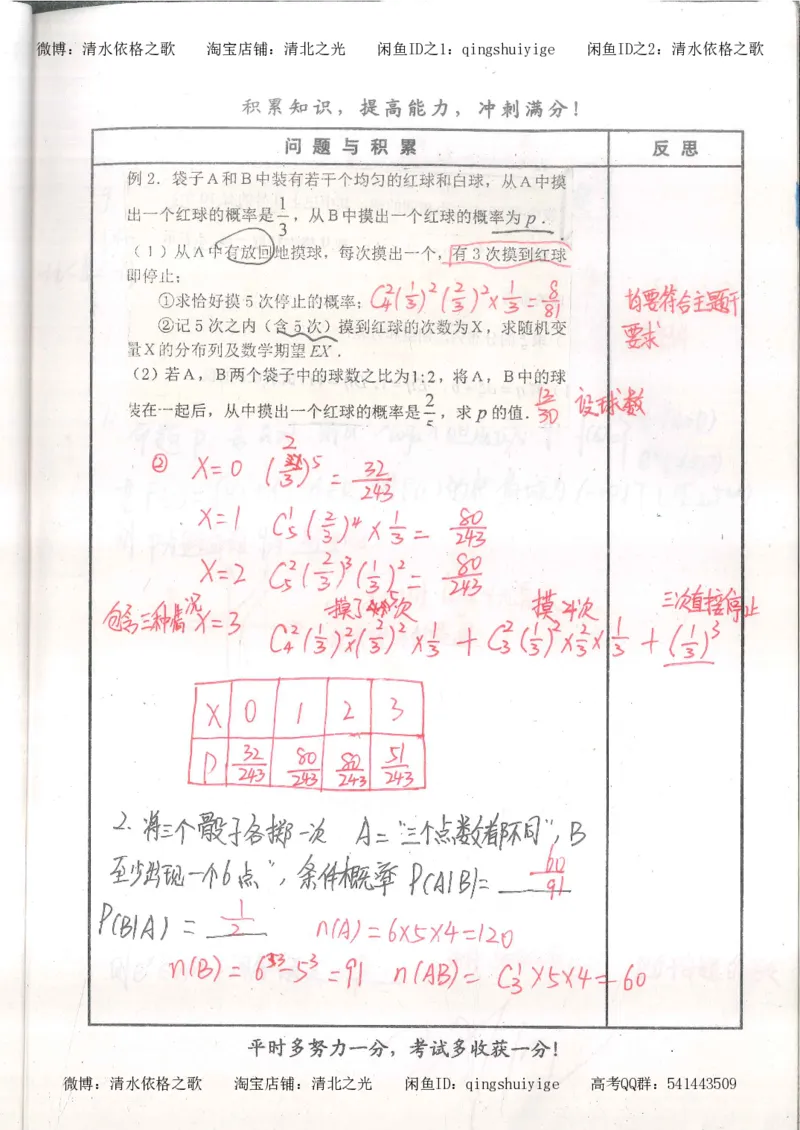 微博：清水依格之歌 淘宝店铺：清北之光 闲鱼ID之1：qingshuiyige 闲鱼ID之2：清水依格之歌
积累知识，提高能力，冲刺满分！
问题与积累 反思
例2．袋子A和B中装有若干个均匀的红球和白球，从A中摸
出一个红球的概率是1/3，从B中摸出一个红球的概率为p．
（1）从A中有放回地摸球，每次摸出一个，有3次摸到红球
即停止；
①求恰好摸5次停止的概率；C₄²(1/3)²(2/3)²×1/3=8/81 均要符合主题干
②记5次之内（含5次）摸到红球的次数为X，求随机变 要求
量X的分布列及数学期望EX．
（2）若A，B两个袋子中的球数之比为1:2，将A，B中的球
装在一起后，从中摸出一个红球的概率是2/5，求p的值．12/30 设球数
② X=0 (2/3)⁵ = 32/243
X=1 C₅¹(2/3)⁴×1/3= 80/243
X=2 C₅²(2/3)³(1/3)²= 80/243
包含三种情况 X=3 摸了 次 摸4次 三次直接停止
C₄²(1/3)²×(2/3)²×1/3 + C₃²(1/3)²×2/3×1/3 + (1/3)³
X 0 1 2 3
P 32/243 80/243 80/243 51/243
2. 将三个骰子各掷一次 A=“三个点数都不同”，B
至少出现一个6点”，条件概率 P(A|B)= 60/91
P(B|A) = 1/2 n(A)=6×5×4=120
n(B)=6³-5³=91 n(AB)= C₃¹×5×4=60
平时多努力一分，考试多收获一分！
微博：清水依格之歌 淘宝店铺：清北之光 闲鱼ID：qingshuiyige 高考QQ群：541443509